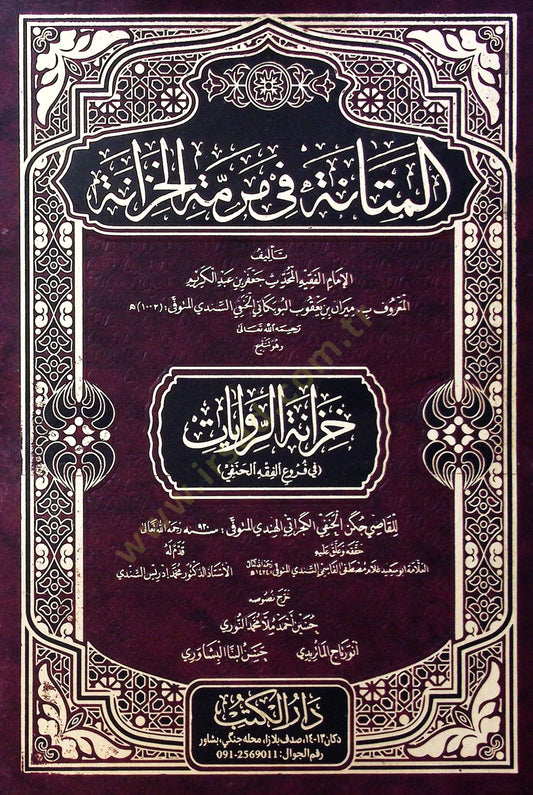 المتانة في مرمة الخزانة
تأليف
الإمام الفقيه المحدث جعفر بن عبد الكريم
المعروف بـ ميران بن يعقوب البوبكاني الحنفي السندي المتوفى: (١٠٠٢) ھ
رحمه الله تعالى
وهو تنقيح
خزانة الروايات
(في فروع الفقه الحنفي)
للقاضي جكن الحنفي الكجراتي الهندي المتوفى: سنه ٩٢٠ رحمه الله تعالى
حققه وعلق عليه
قدم له
العلامة ابو سعيد غلام مصطفى القاسمي السندي المتوفى: ١٤٢٤ھ رحمه الله تعالى
الأستاذ الدكتور محمد ادريس السندي
خرج نصوصه
حسين أحمد ملا محمد النوري
أنور تاج الماتريدي
حسن البنا البشاوري
دار الكتب
دكان ١٣-١٤، صدف بلازا، محله جنگي، بشاور
رقم الجوال: 2569011-091